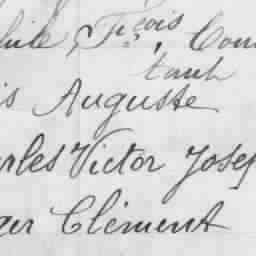 hile, Fçois Cons
tant
is Auguste
arles Victor Josep
ger Clément